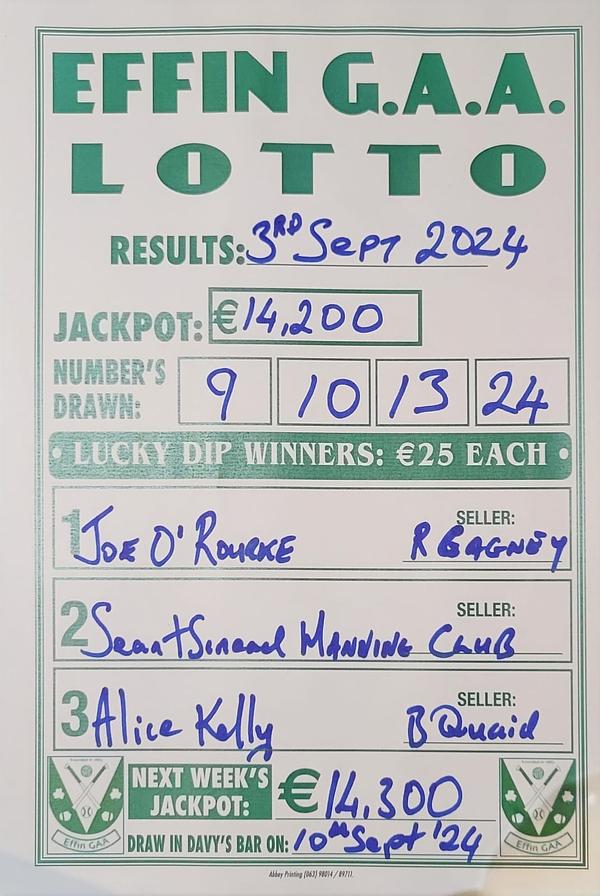 EFFIN G.A.A.
LOTTO
RESULTS: 3RD SEPT 2024
JACKPOT: €14,200
NUMBER'S DRAWN: 9 10 13 24
• LUCKY DIP WINNERS: €25 EACH •
1 JOE O'ROURKE SELLER: R GAGNEY
2 Sean + Sinead MANNING SELLER: CLUB
3 Alice Kelly SELLER: B Quaid
NEXT WEEK'S JACKPOT: €14,300
DRAW IN DAVY'S BAR ON: 10th Sept '24
Effin GAA Effin GAA
Abbey Printing (063) 98014 / 89711.